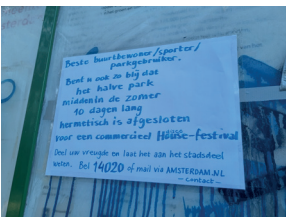 Beste buurtbewoner/sporter/
parkgebruiker.
Bent u ook zo blij dat
het halve park
middenin de zomer
10 dagen lang
hermetisch is afgesloten
voor een commercieel House-festival
Deel uw vreugde en laat het aan het stadsdeel
weten. Bel 14020 of mail via AMSTERDAM.NL
- contact -